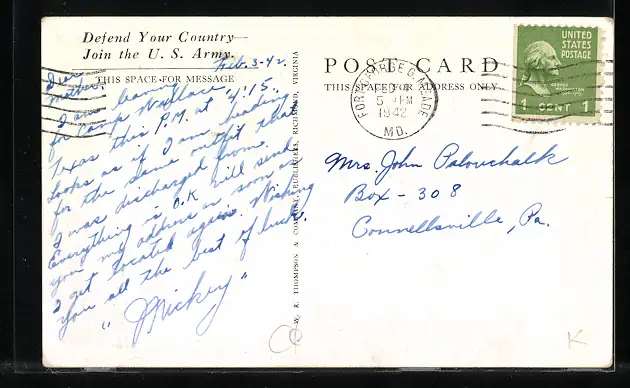 Defend Your Country—
Join the U. S. Army.
Feb. 3-42.
THIS SPACE FOR MESSAGE
Dear
Mother,
I am leaving
for Camp Wallace,
Texas this P.M. at 4:15.
looks as if I am heading
for the same outfit that
I was discharged from.
Everything is O.K. will send
you my address as soon as
I get located again. Wishing
you all the best of luck.
"Mickey"
W. R. THOMPSON & COMPANY, PUBLISHERS, RICHMOND, VIRGINIA
POST CARD
THIS SPACE FOR ADDRESS ONLY
FORT GEORGE G. MEADE
FEB
5 PM
1942
MD.
UNITED
STATES
POSTAGE
GEORGE
WASHINGTON
1 CENT 1
Mrs. John Palouchalk
Box - 308
Connellsville, Pa.
K